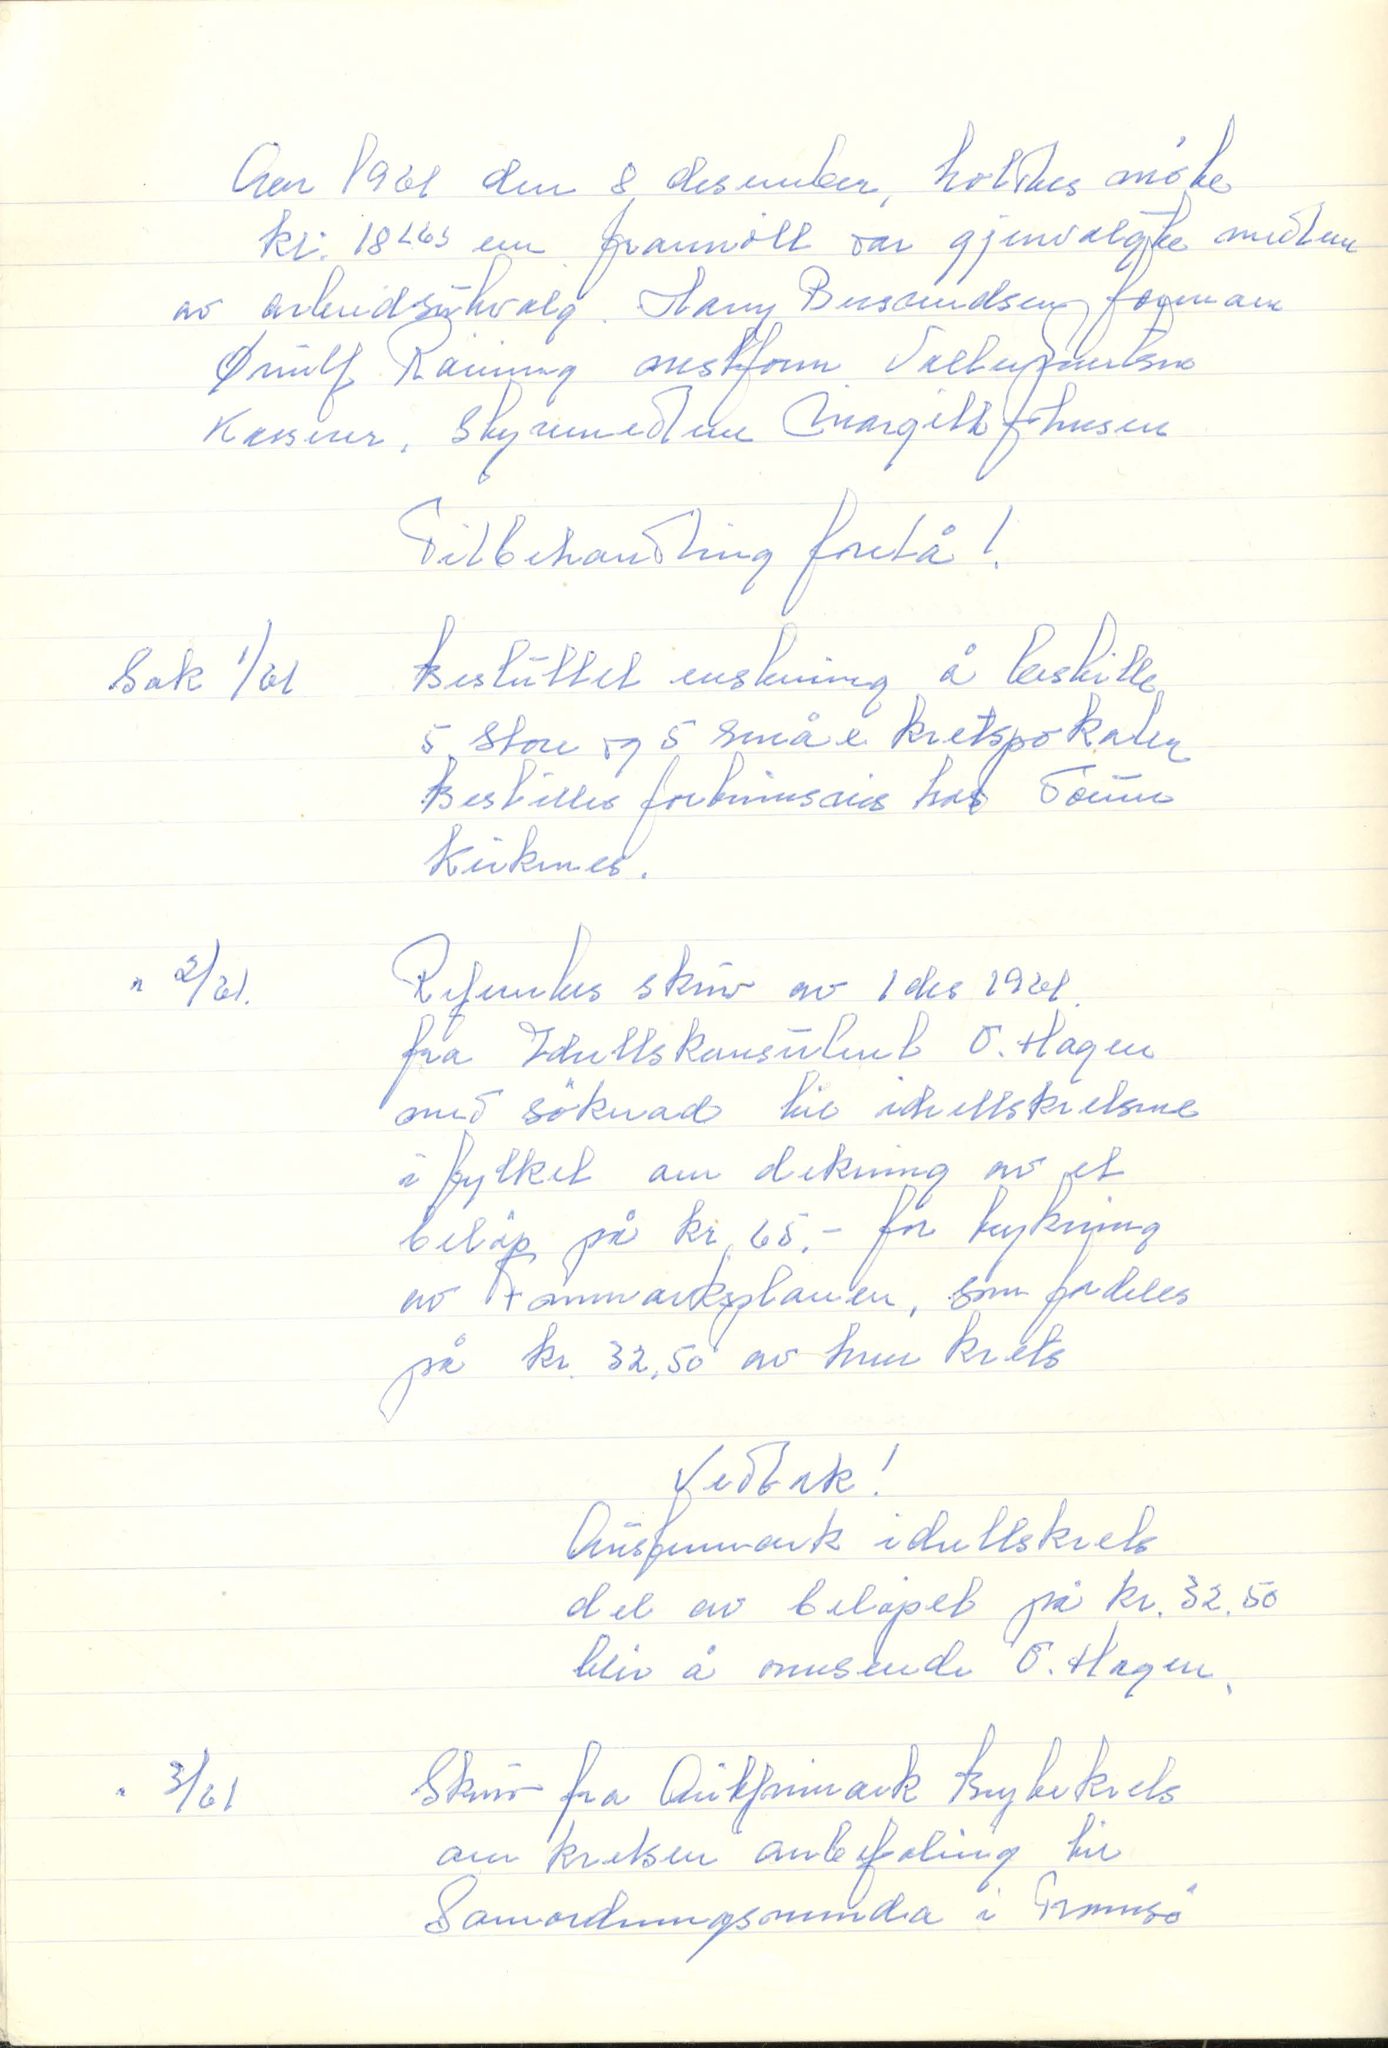 Aar 1961 den 8 desember, holdtes möte
kl. 18 em framnött var gjenvalgte medlem
av arbeidsütvalg. Harry Bersvendsen formann
Ørnülf Räining nestform Valter
Kasserer, Styremedlem Margith Johnsen
Tilbehandling forelå!
Sak 1/61 Beslüttet enstemig å bestille
5 store og 5 små e kretspokaler
Bestilles fortrinsvis hos
Kirkenes.
" 2/61. Referertes skriv av 1 des 1961.
fra Idrettskonsülent O. Hagen
med söknad til idrettskretsene
i fylket om dekning av et
belöp på kr. 65.- for trykning
av Finnmarksplanen, som fordeles
på kr. 32,50 av hver krets
Vedtak!
Aüstfinnmark idrettskrets
del av belöpet på kr. 32.50
blir å oversende O. Hagen.
" 3/61 Skriv fra Aüstfinmark Brytekrets
om kretsen anbefaling til
Samordningsnemda i Tromsö